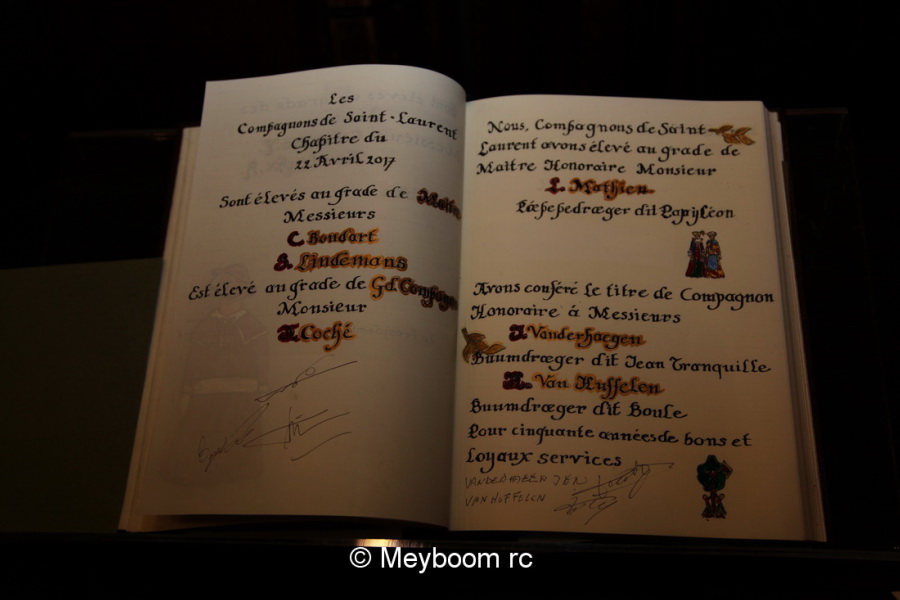 Les
Compagnons de Saint-Laurent
Chapitre du
22 Avril 2017
Sont élevés au grade de Maître
Messieurs
C. Boudart
S. Lindemans
Est élevé au grade de Gd. Compag
Monsieur
Coché
Nous, Compagnons de Saint-
Laurent avons élevé au grade de
Maître Honoraire Monsieur
L. Mathieu
Pœpedrœger dit Papyléon
Avons conféré le titre de Compagnon
Honoraire à Messieurs
J. Vanderhaegen
Buumdrœger dit Jean Tranquille
Van Huffelen
Buumdrœger dit Boule
Pour cinquante années de bons et
Loyaux services
VAN HUFFELEN
© Meyboom rc